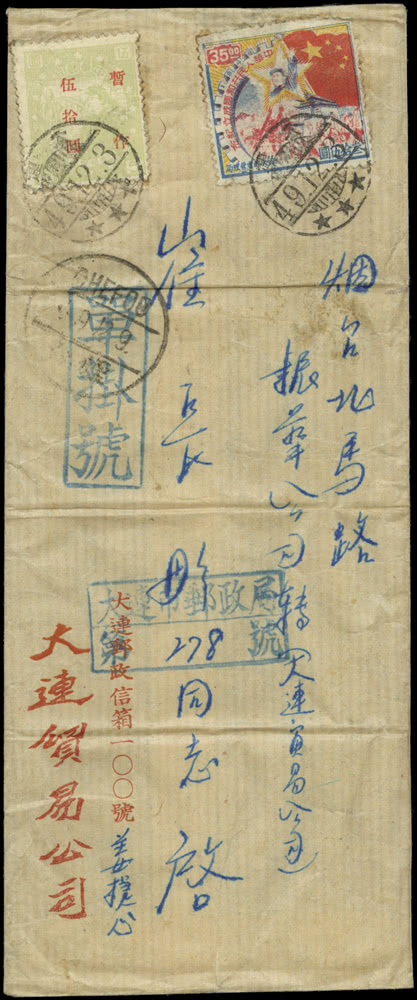 烟台北馬路
振華公司轉大連貿易公司
崔
同志啟
單掛號
大連市郵政局
第278號
大連郵政信箱一〇〇號
大連貿易公司
暫作
伍拾圓
35.00
49.12.3
49.12.3
CHEFOO